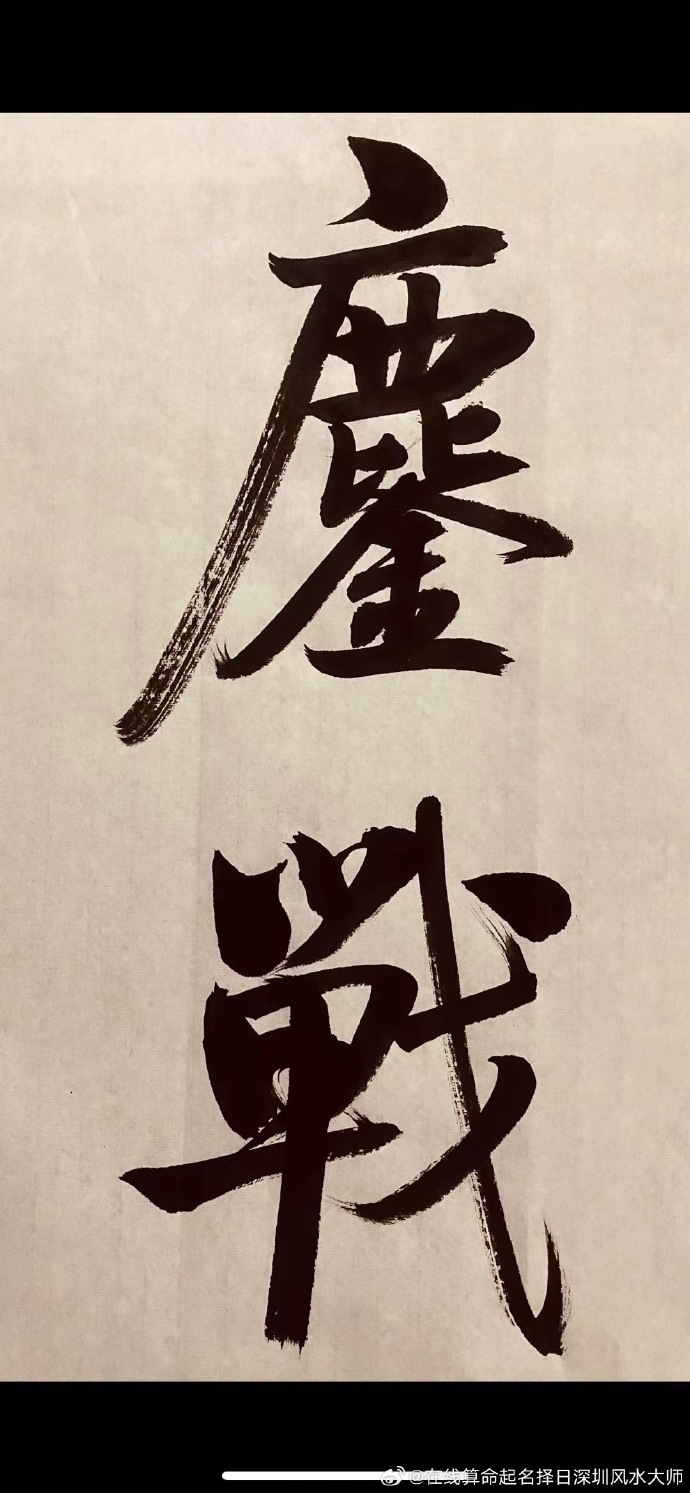 鏖戰
@在线算命起名择日深圳风水大师